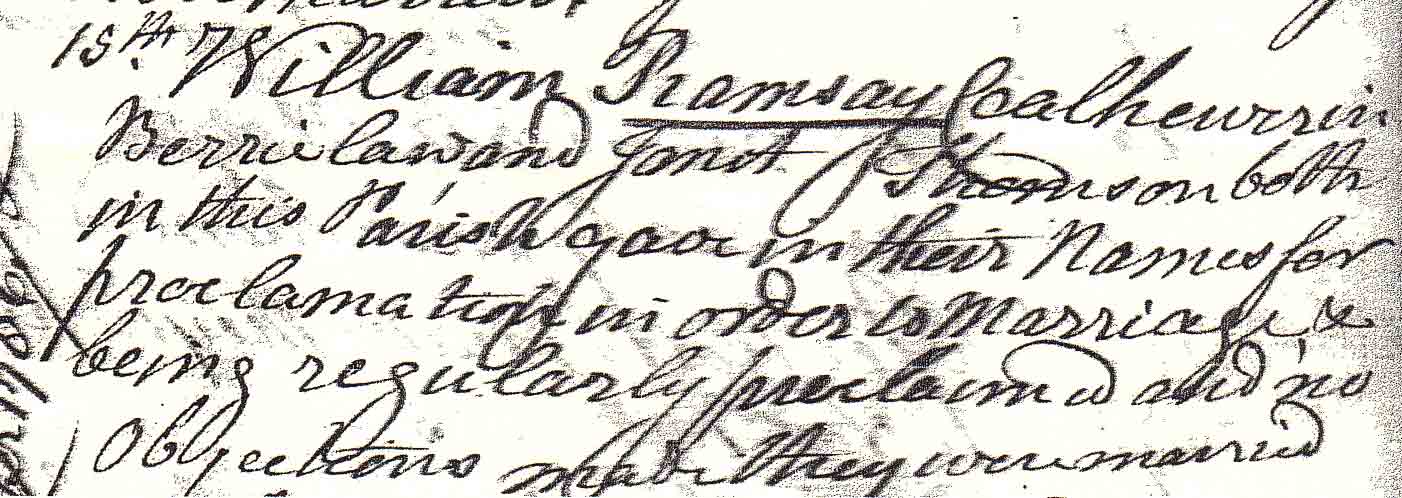 15th. William Ramsay Coalhewer in
Berrielaw and Jonet Thomson both
in this Parish gave in their Names for
proclamation in order to Marriage &
being regularly proclaimed and no
Objections made they were married